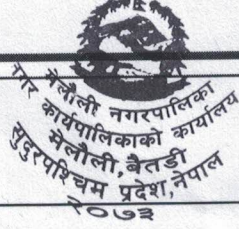 मेलौली नगरपालिका
नगर कार्यपालिकाको कार्यालय
मेलौली, बैतडी
सुदुरपश्चिम प्रदेश, नेपाल
२०७३